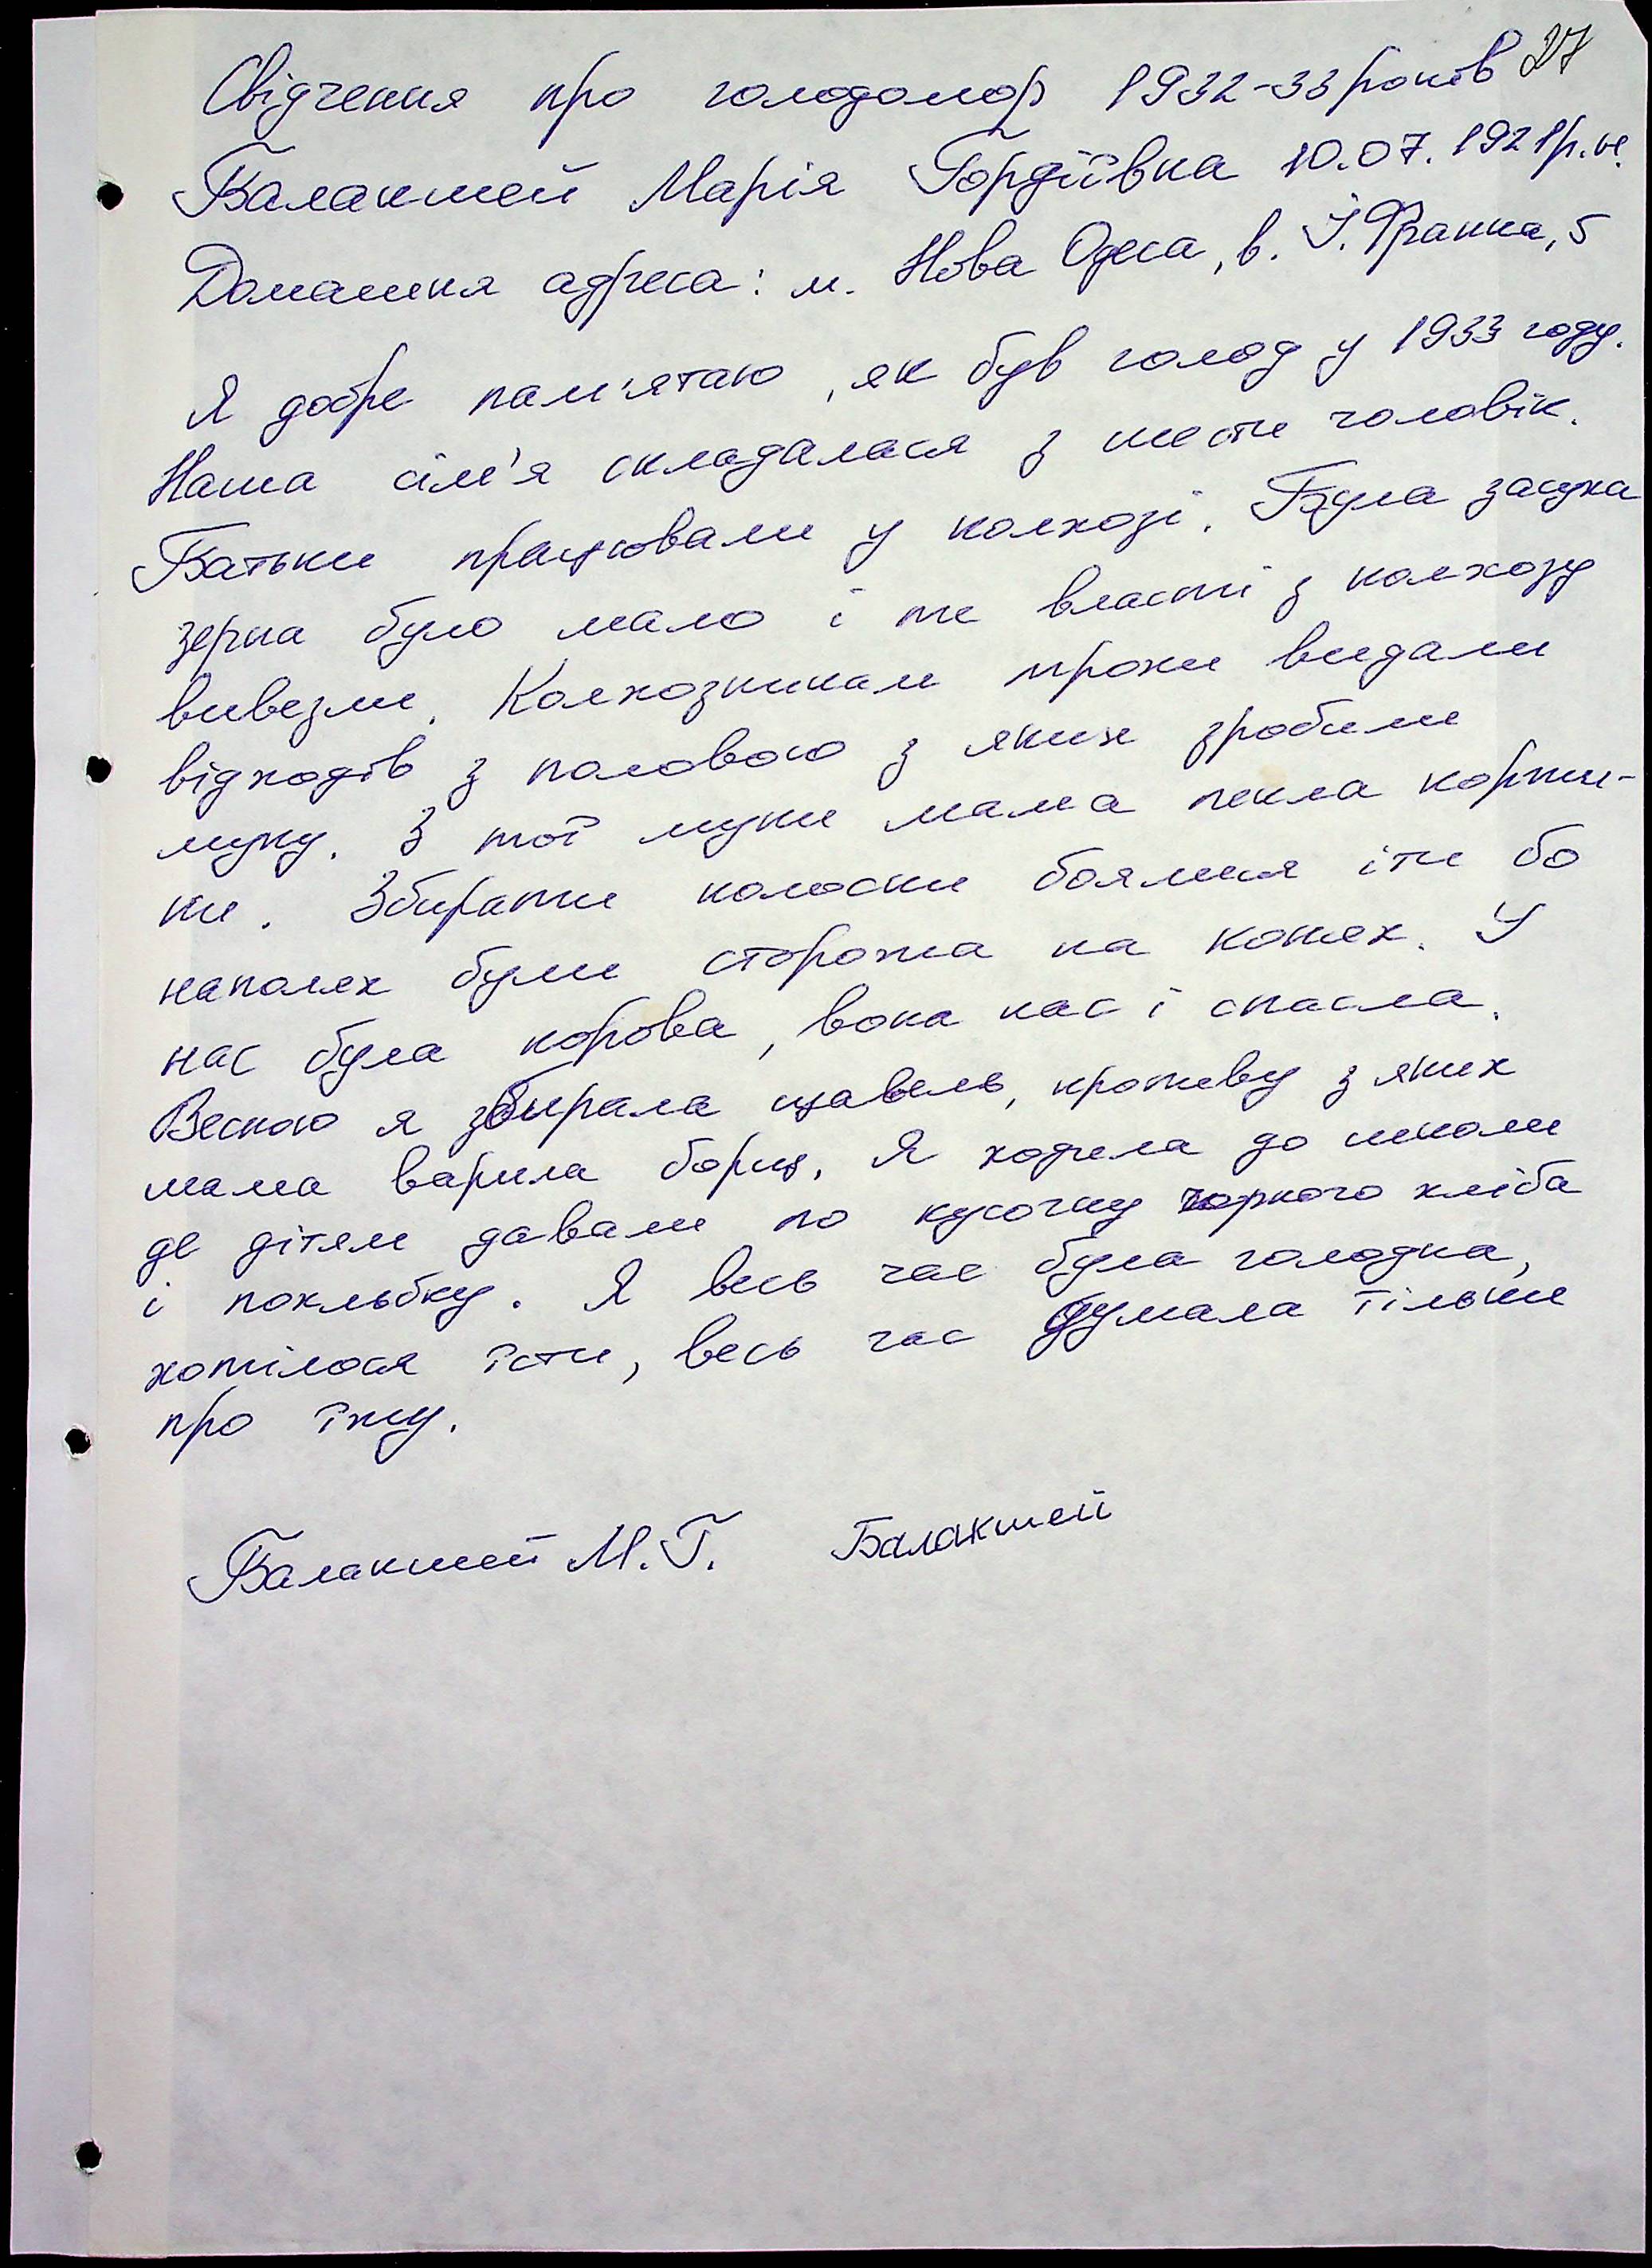 27
Свідчення про голодомор 1932-33 років
Балакшей Марія Гордіївна 10.07.1921р.н.
Домашня адреса: м. Нова Одеса, в. І. Франка, 5
Я добре пам'ятаю, як був голод у 1933 году.
Наша сім'я складалася з шести чоловік.
Батьки працювали у колхозі. Була засуха
зерна було мало і те власті з колхозу
вивезли. Колхозникам трохи видали
відходів з половою з яких зробили
муку. З тої муки мама пекла коржи-
ки. Збирати колоски боялися іти бо
на полях були сторожа на конях. У
нас була корова, вона нас і спасла.
Весною я збирала щавель, кропиву з яких
мама варила борщ. Я ходила до школи
де дітям давали по кусочку чорного хліба
і похльобку. Я весь час була голодна,
хотілося їсти, весь час думала тільки
про їжу.
Балакшей М.Г. Балакшей